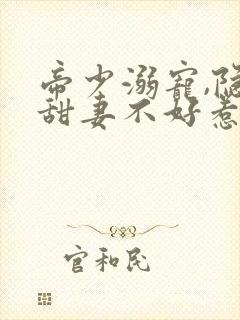 帝少溺宠,隐
甜妻不好惹
官和民